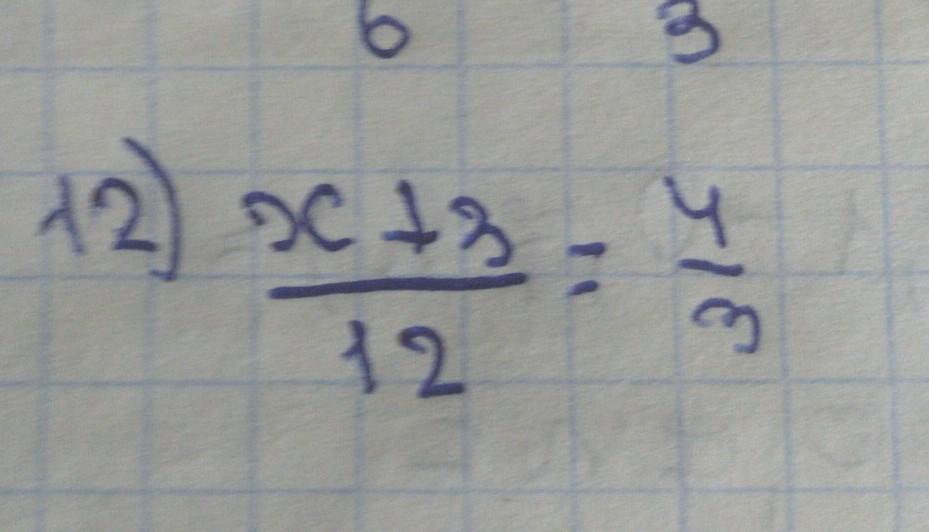 6 3
12) x+3/12 = 4/3